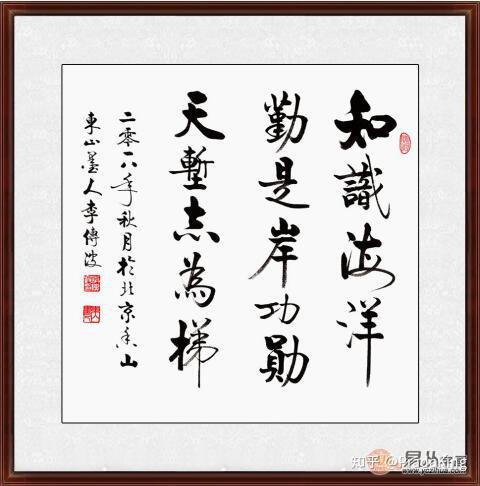 和識海洋
勤是岸功勛
天塹志為梯
二零一八年秋月於北京香山
東山墨人李傳波
知乎
www.yczihua.com